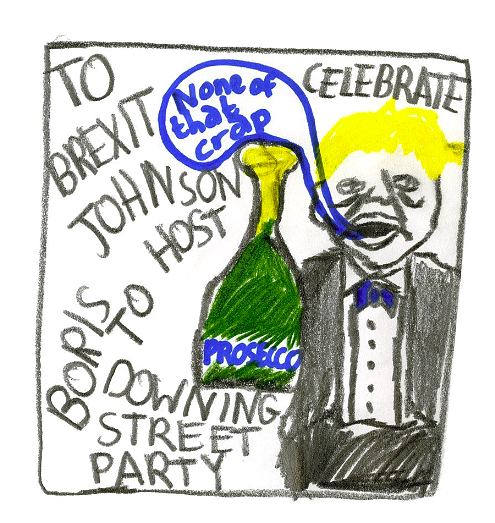 TO
CELEBRATE
BREXIT
JOHNSON
HOST
BORIS
TO
DOWNING
STREET
PARTY
None of
that
crap
PROSECCO